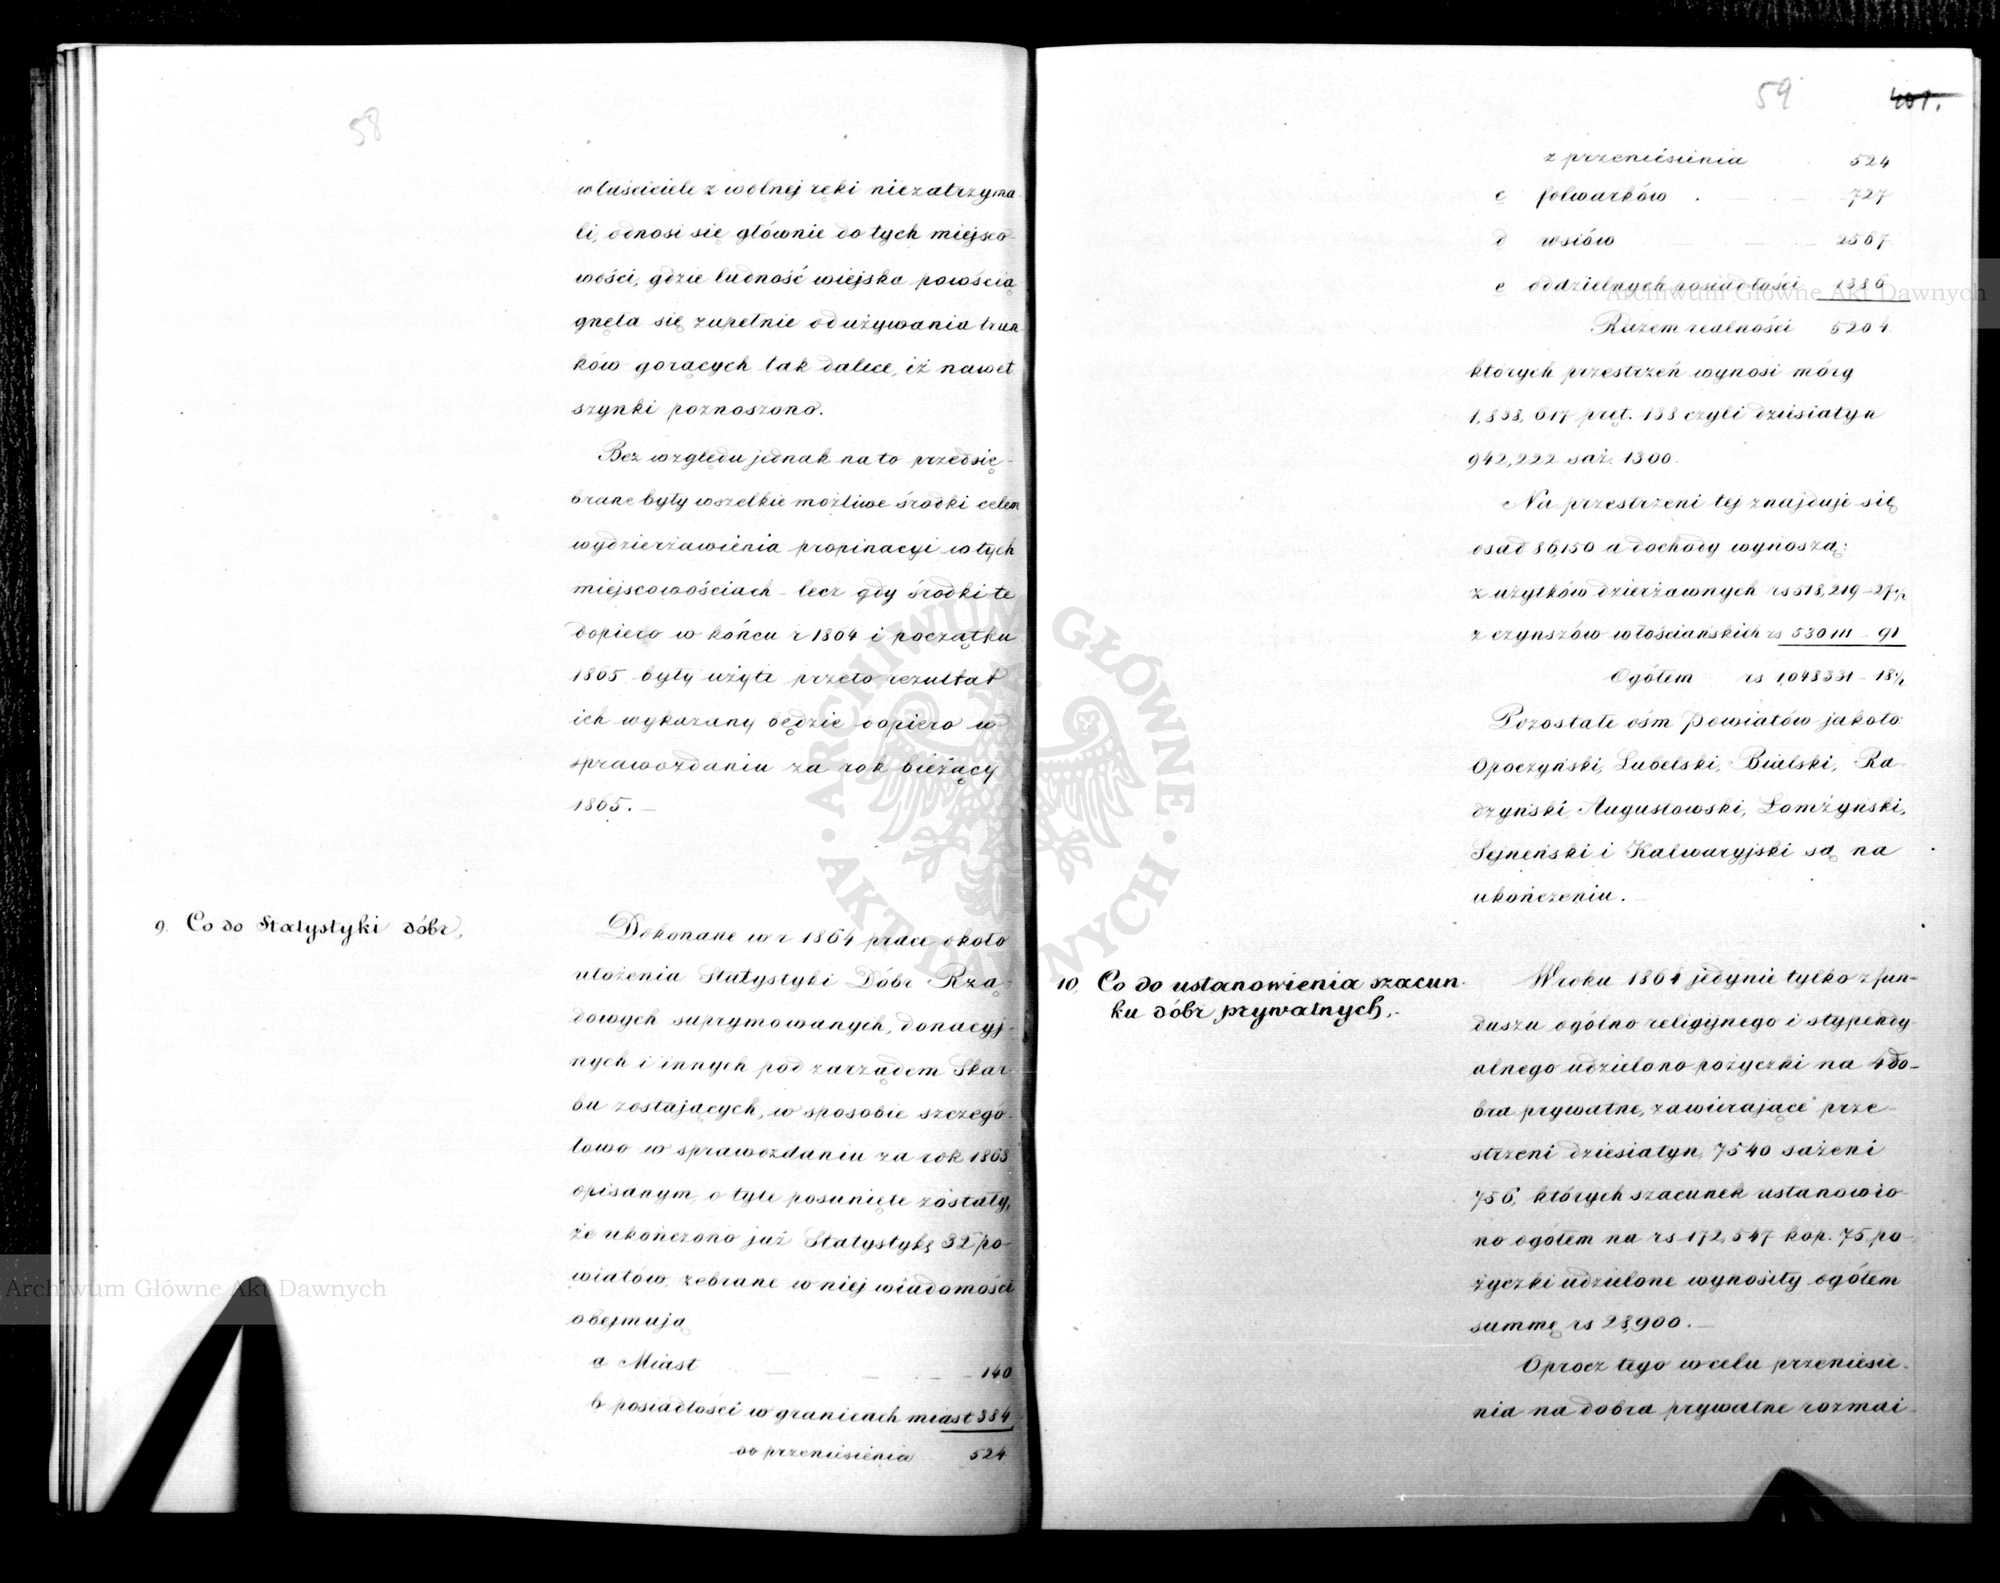 58
właściciele z wolnej ręki niezatrzyma
li, odnosi się głównie do tych miejsco-
wości, gdzie ludność wiejska powścią
gnęła się zupełnie od używania trun
ków gorących tak dalece, iż nawet
szynki poznoszono.
Bez względu jednak na to przedsię-
brane były wszelkie możliwe środki celem
wydzierżawienia propinacyi w tych
miejscowościach - lecz gdy środki te
dopiero w końcu r 1864 i początku
1865 były użyte przeto rezultat
ich wykazany będzie dopiero w
sprawozdaniu za rok bieżący
1865. —
9. Co do Statystyki dóbr.
Dokonane w r 1864 prace około
ułożenia Statystyki Dóbr Rzą-
dowych suprymowanych, donacyj-
nych i innych pod zarządem Skar
bu zostających, w sposobie szczegó-
łowo w sprawozdaniu za rok 1863
opisanym, o tyle posunięte zostały,
że ukończono już Statystykę 32 po-
wiatów, zebrane w niej wiadomości
obejmują
a Miast — — — 140
b posiadłości w granicach miast 384
do przeniesienia 524
59 401.
z przeniesienia 524
c folwarków . — . — 727
d wsiów — — 2567
e oddzielnych posiadłości 1386
Razem realności 5204
których przestrzeń wynosi mórg
1,838,617 pręt. 138 czyli dziesiatyn
942,222 saż. 1300.
Na przestrzeni tej znajduje się
osad 86,150 a dochody wynoszą:
z użytków dzierżawnych rs 518,219 - 27½
z czynszów włościańskich rs 530111 - 91
Ogółem rs 1,048331 - 18½
Pozostałe ośm powiatów jakoto:
Opoczyński, Lubelski, Bialski, Ra-
dzyński, Augustowski, Łomżyński,
Sejneński i Kalwaryjski są na
ukończeniu. —
10. Co do ustanowienia szacun-
ku dóbr prywatnych.-
W roku 1864 jedynie tylko z fun-
duszu ogólno religijnego i stypendy-
alnego udzielono pożyczki na 4 do-
bra prywatne, zawierające prze-
strzeni dziesiatyn 7540 sażeni
756, których szacunek ustanowio-
no ogółem na rs 172,547 kop. 75, po-
życzki udzielone wynosiły ogółem
summę rs 28,900. —
Oprocz tego w celu przeniesie-
nia na dobra prywatne rozmai-
Archiwum Główne Akt Dawnych
Archiwum Główne Akt Dawnych
ARCHIWUM GŁÓWNE · AKT DAWNYCH ·